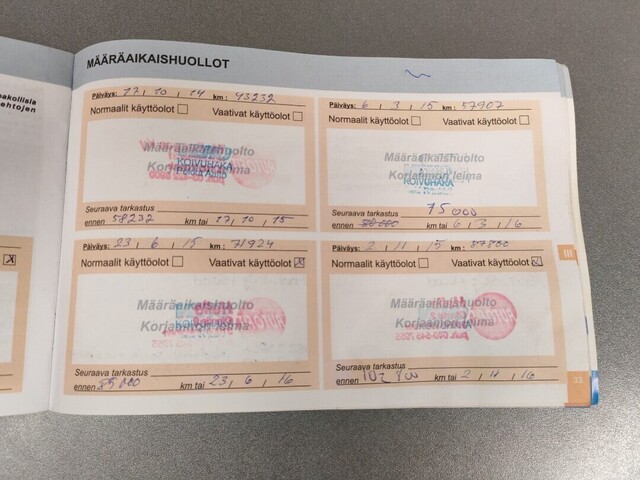 pakollisia
ehtojen
MÄÄRÄAIKAISHUOLLOT
Päiväys: 17 , 10 , 14 km: 43232
Normaalit käyttöolot Vaativat käyttöolot
Määräaikaishuolto
Korjaamon leima
KOIVUHAKA
Seuraava tarkastus
ennen 58232 km tai 17 , 10 , 15
Päiväys: 6 , 3 , 15 km: 57907
Normaalit käyttöolot Vaativat käyttöolot
Määräaikaishuolto
Korjaamon leima
KOIVUHAKA
Seuraava tarkastus 75000
ennen km tai 6 , 3 , 16
Päiväys: 23 , 6 , 15 km: 71924
Normaalit käyttöolot Vaativat käyttöolot
Määräaikaishuolto
Korjaamon leima
Seuraava tarkastus
ennen km tai 23 , 6 , 16
Päiväys: 2 , 11 , 15 km: 87800
Normaalit käyttöolot Vaativat käyttöolot
Määräaikaishuolto
Korjaamon leima
Seuraava tarkastus
ennen 102 800 km tai 2 , 11 , 16
III
33